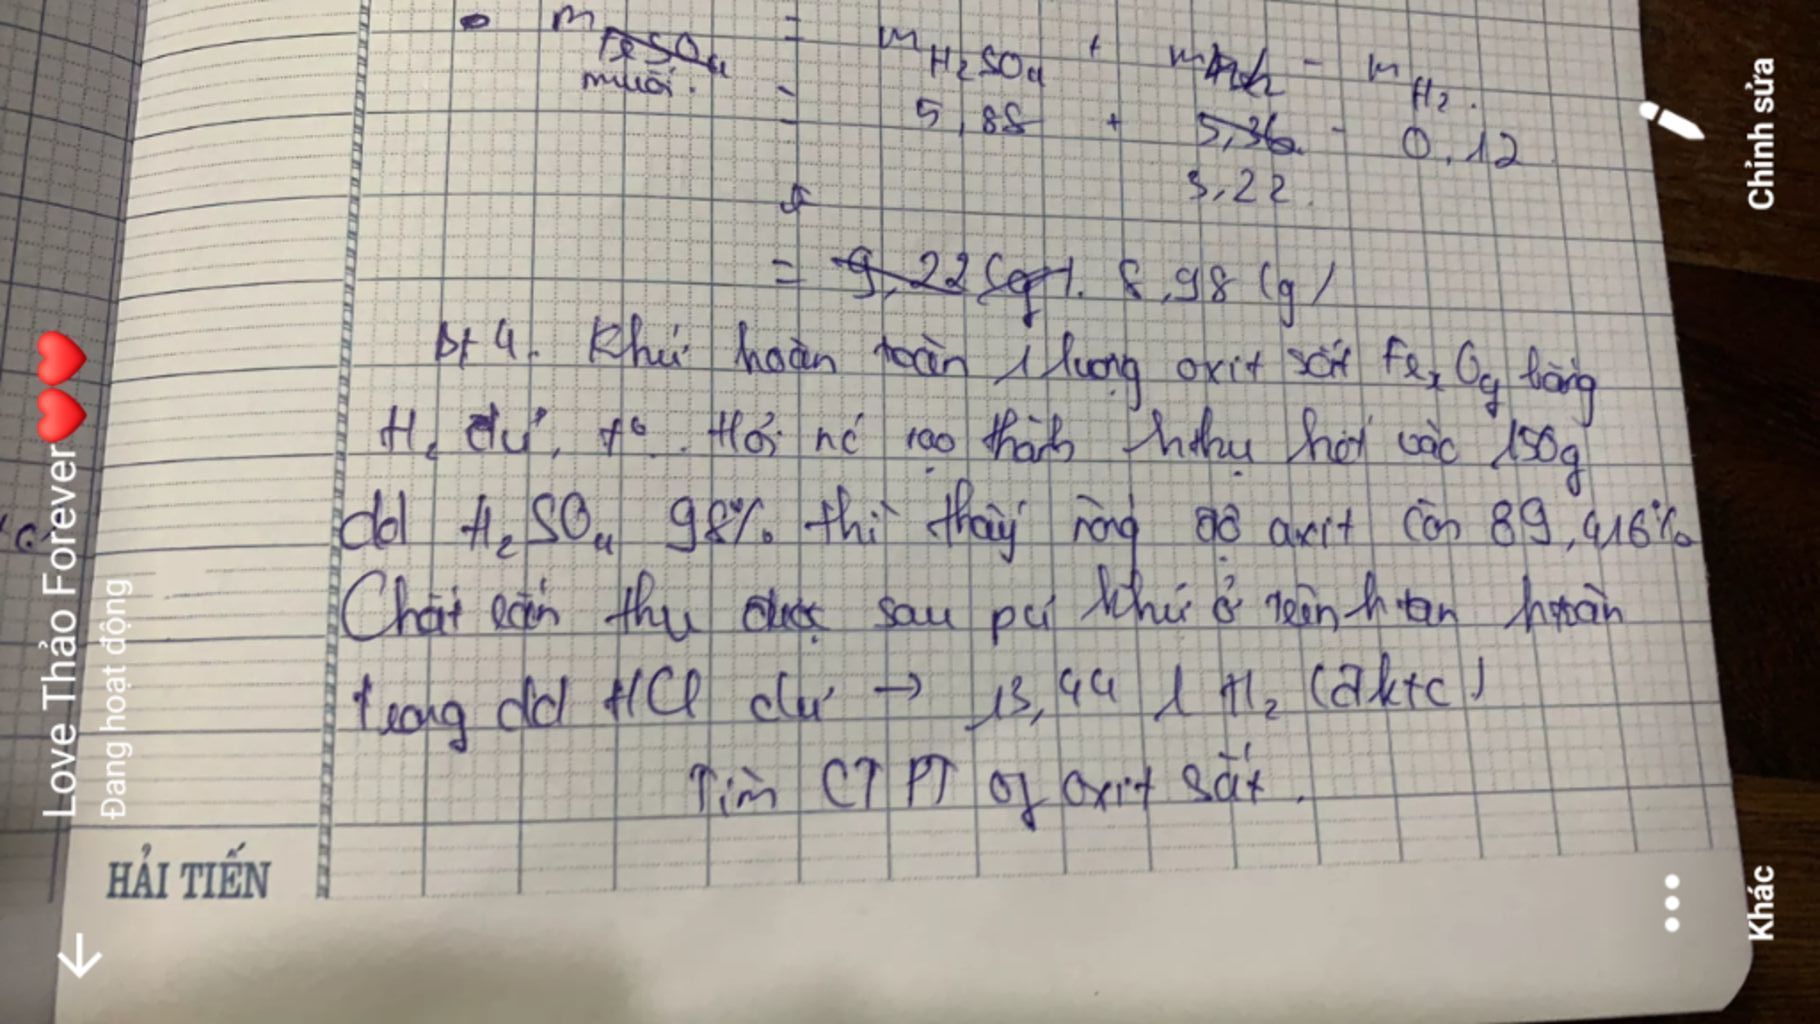 m FeSO4 = mH2SO4 + mkh - mH2.
muối.
= 5,88 + 5,36 - 0,12
3,22.
= 9,22 (g). 8,98 (g)
Bt 4. Khử hoàn toàn 1 lượng oxit sắt FexOy bằng
H2 dư, t°. Hơi nc tạo thành h thụ hết vào 150g
dd H2SO4 98% thì thấy nồng độ axit còn 89,416%
Chất rắn thu được sau pứ khử ở trên h tan h toàn
trong dd HCl dư → 13,44 l H2 (đktc)
Tìm CTPT of oxit sắt.
HẢI TIẾN
Love Thảo Forever❤️❤️
Đang hoạt động
Chỉnh sửa
Khác